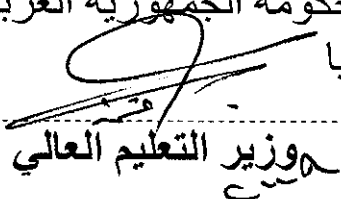 حكومة الجمهورية العربي
يا
وزير التعليم العالي